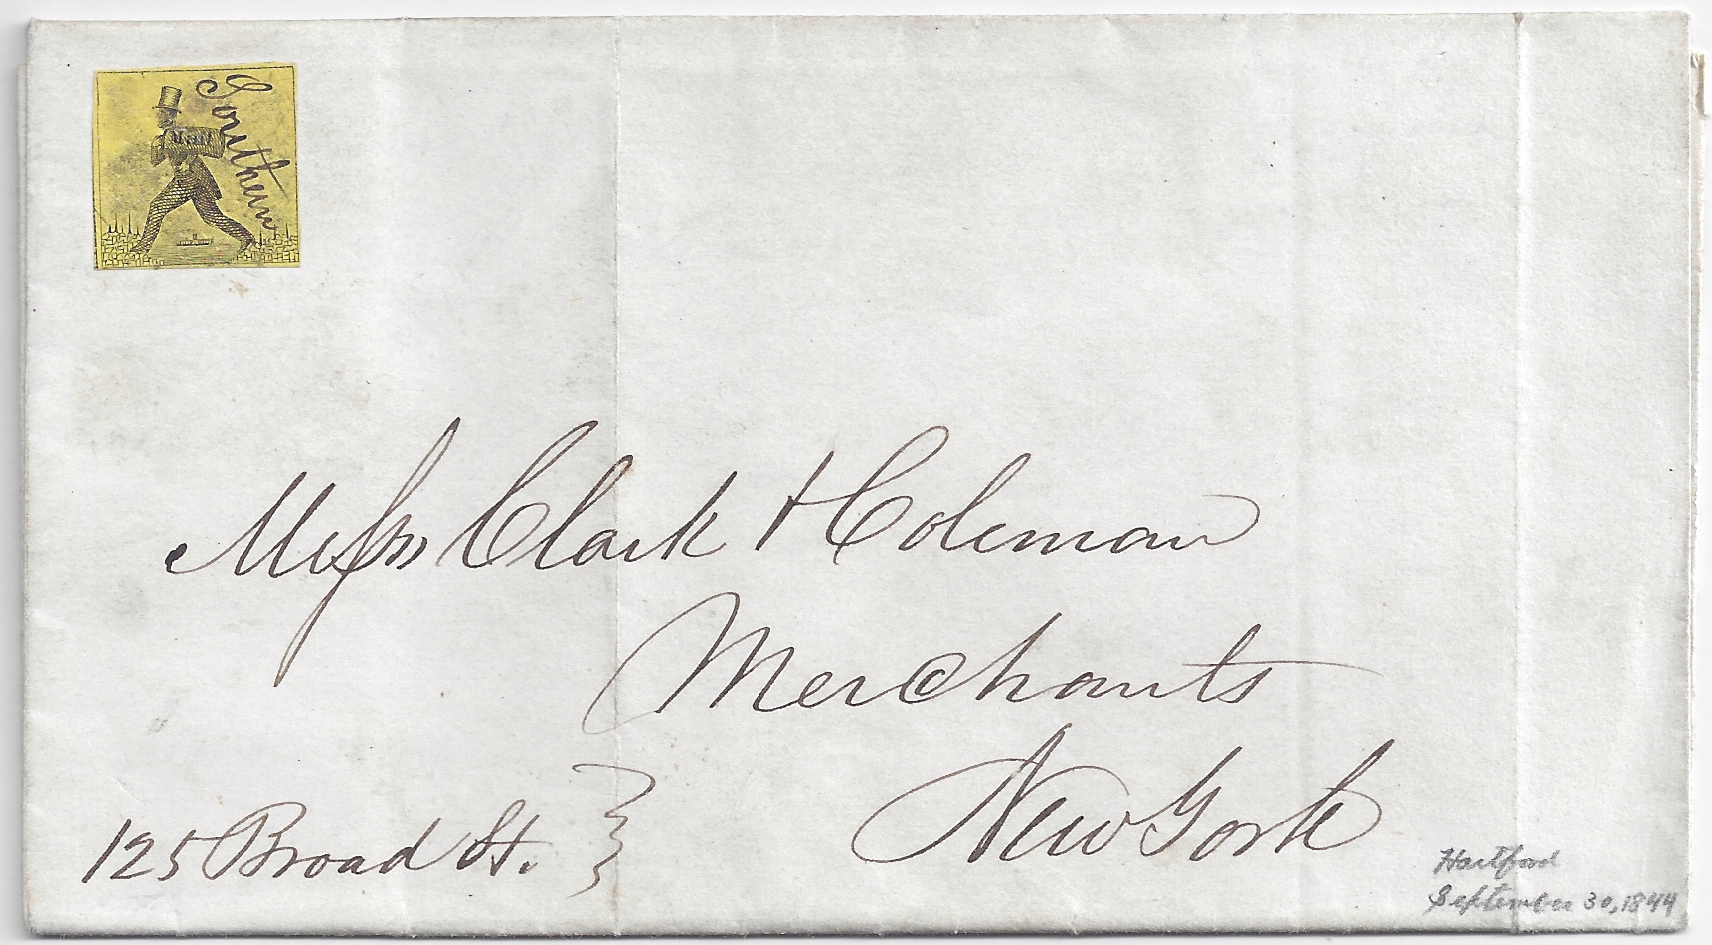 Southern
Messrs Clark & Coleman
Merchants
New York
125 Broad St.
Hartford
September 30, 1844